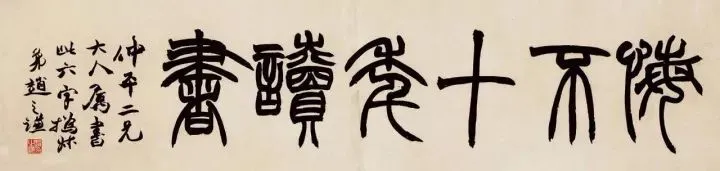 悔不十年讀書
仲平二兄
大人屬書
此六字撝叔
弟趙之謙